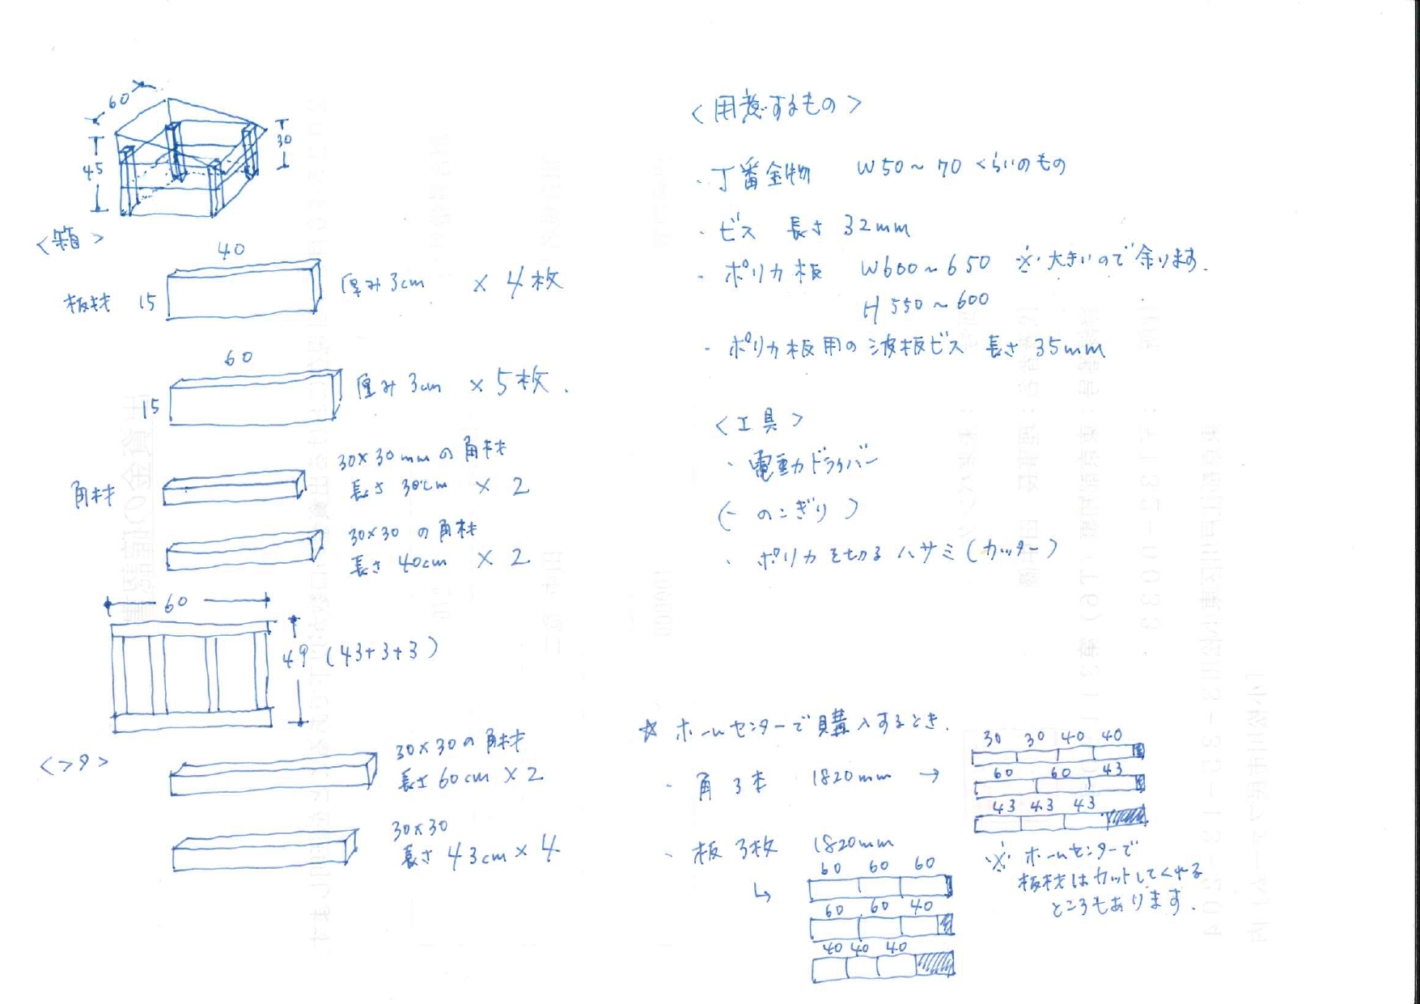 60
45
30
<箱>
40
板材 15 厚み3cm × 4枚
60
15 厚み3cm × 5枚.
角材 30×30mmの角材
長さ30cm × 2
30×30 の角材
長さ40cm × 2
60
49 (43+3+3)
<フタ>
30×30の角材
長さ60cm × 2
30×30
長さ43cm × 4
<用意するもの>
・丁番金物 W50~70くらいのもの
・ビス 長さ 32mm
・ポリカ板 W600~650 ※大きいので余ります.
H 550~600
・ポリカ板用の波板ビス 長さ 35mm
<工具>
・電動ドライバー
(・のこぎり)
・ポリカを切るハサミ(カッター)
☆ ホームセンターで購入するとき.
・角 3本 1820mm →
30 30 40 40
60 60 43
43 43 43
・板 3枚 1820mm
↳
60 60 60
60 60 40
40 40 40
※ ホームセンターで
板材はカットしてくれる
ところもあります.